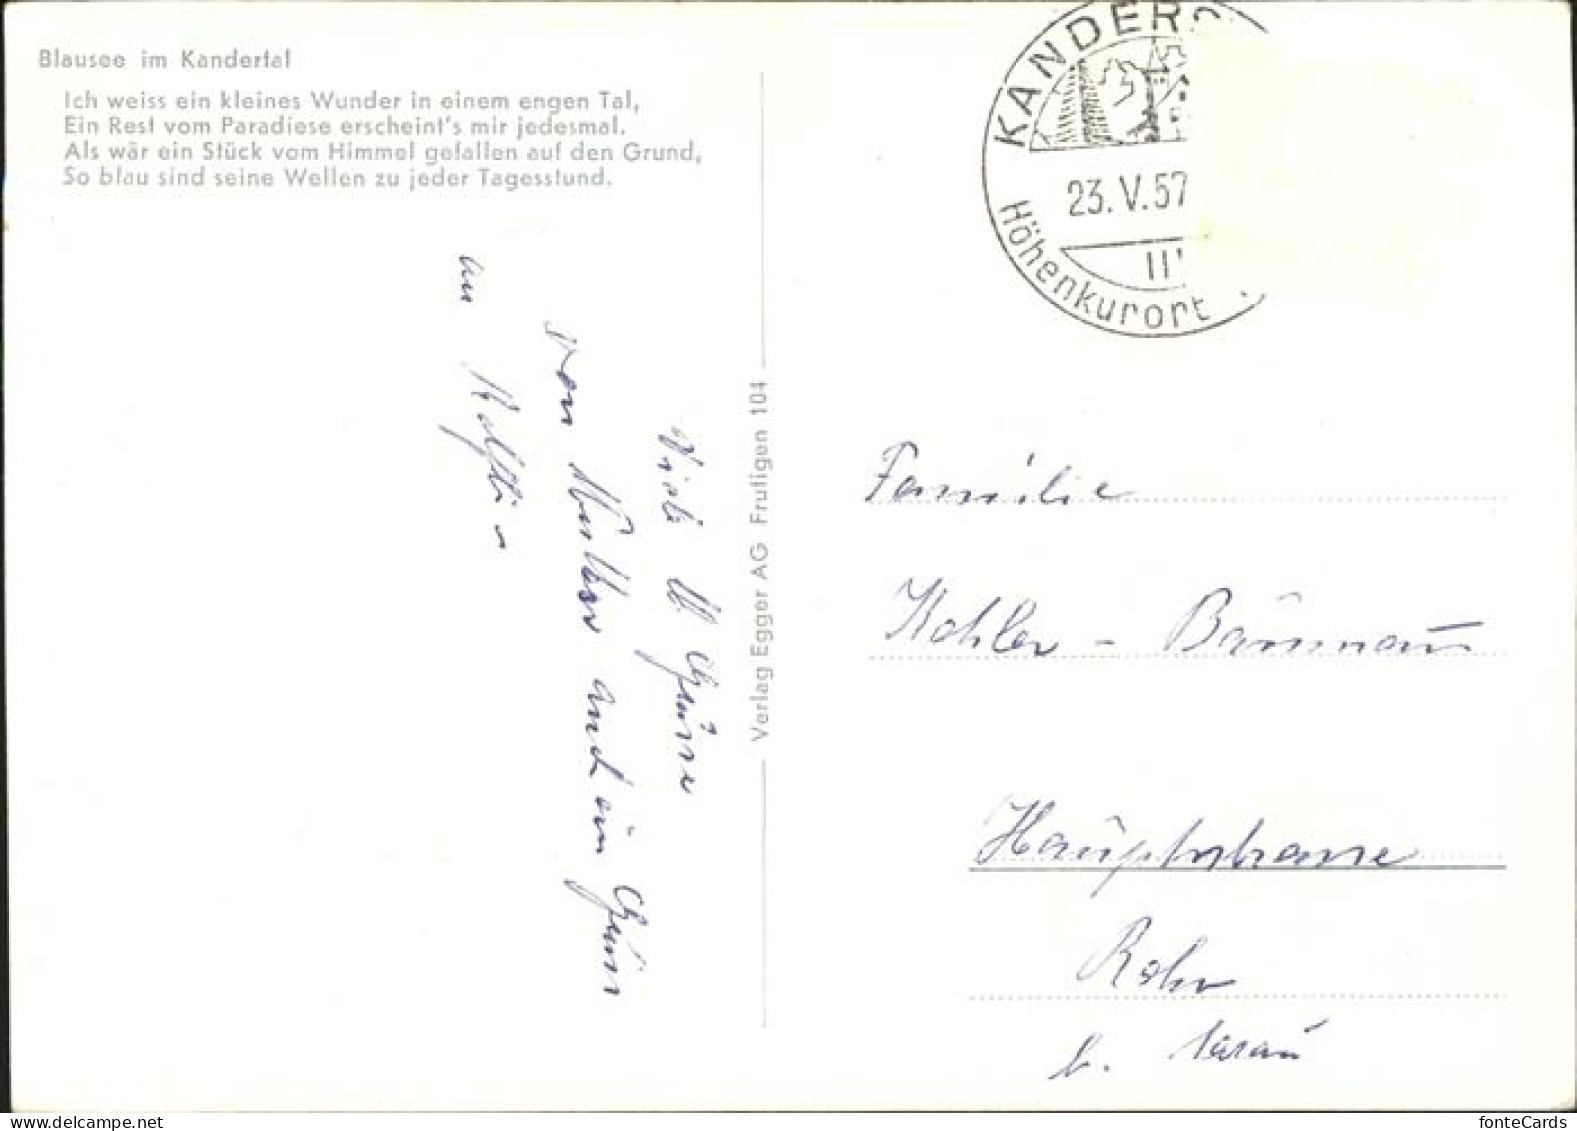 Blausee im Kandertal
Ich weiss ein kleines Wunder in einem engen Tal,
Ein Rest vom Paradiese erscheint's mir jedesmal.
Als wär ein Stück vom Himmel gefallen auf den Grund,
So blau sind seine Wellen zu jeder Tagesstund.
KANDERS
23.V.57
Höhenkurort
Verlag Egger AG Frutigen 104
Viele Grüsse
von und ein Gruss
an
Familie
Kohler - Bäumann
Hauptstrasse
Rohr
b. Aarau
fonteCards